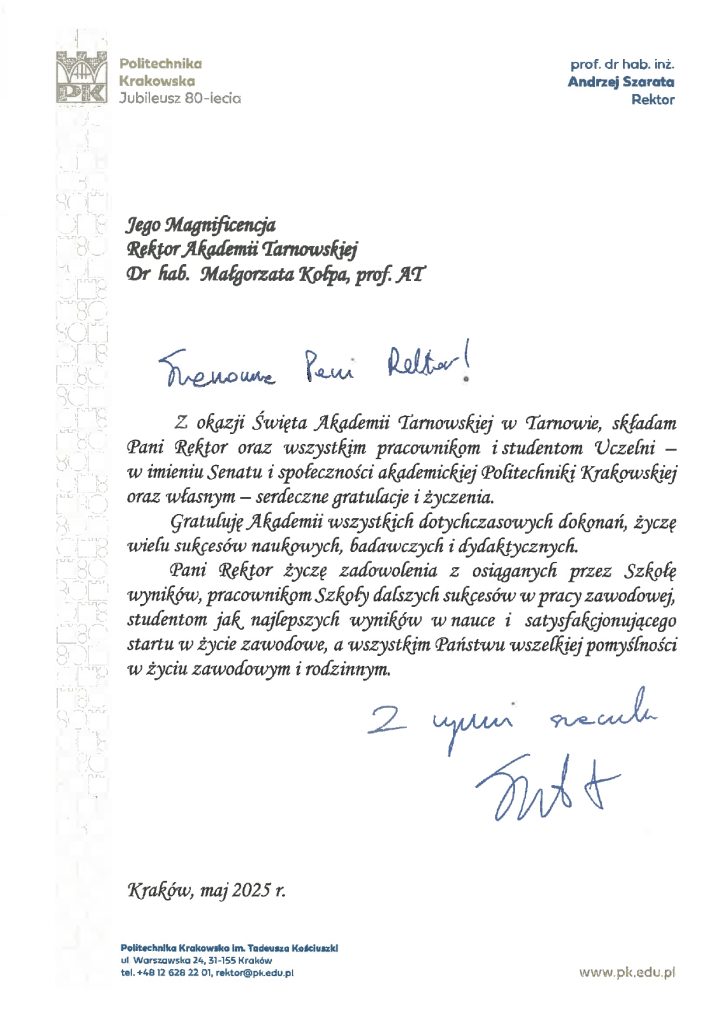 Politechnika
Krakowska
Jubileusz 80-lecia
prof. dr hab. inż.
Andrzej Szarata
Rektor
PK
Jego Magnificencja
Rektor Akademii Tarnowskiej
Dr hab. Małgorzata Kołpa, prof. AT
Szanowna Pani Rektor!
Z okazji Święta Akademii Tarnowskiej w Tarnowie, składam
Pani Rektor oraz wszystkim pracownikom i studentom Uczelni –
w imieniu Senatu i społeczności akademickiej Politechniki Krakowskiej
oraz własnym – serdeczne gratulacje i życzenia.
Gratuluję Akademii wszystkich dotychczasowych dokonań, życzę
wielu sukcesów naukowych, badawczych i dydaktycznych.
Pani Rektor życzę zadowolenia z osiąganych przez Szkołę
wyników, pracownikom Szkoły dalszych sukcesów w pracy zawodowej,
studentom jak najlepszych wyników w nauce i satysfakcjonującego
startu w życie zawodowe, a wszystkim Państwu wszelkiej pomyślności
w życiu zawodowym i rodzinnym.
Z wyrazami szacunku
Kraków, maj 2025 r.
Politechnika Krakowska im. Tadeusza Kościuszki
ul. Warszawska 24, 31-155 Kraków
tel. +48 12 628 22 01, rektor@pk.edu.pl
www.pk.edu.pl